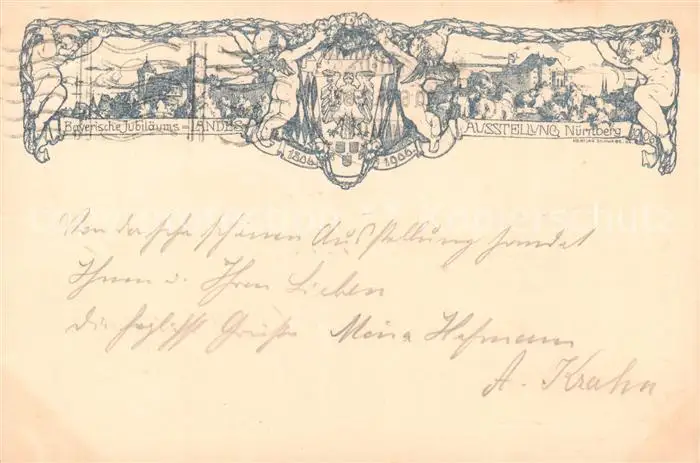 Bayerische Jubiläums-LANDES AUSSTELLUNG Nürnberg 1906
1806 1906
Von der sehr schönen Ausstellung sendet
Ihnen u. Ihren Lieben
die herzlichst Grüße Meina Hofmann
A. Krahn